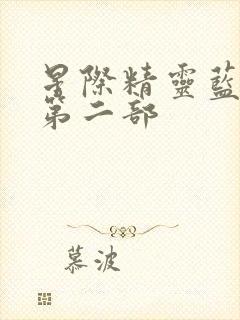 星際精靈藍
第二部
慕波